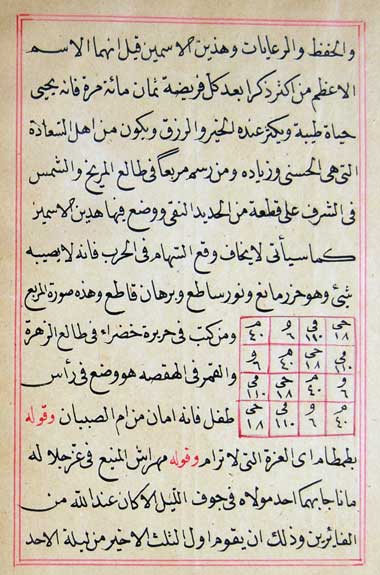 والحفظ والرعايات وهذين الاسمين قيل انهما الاسم
الاعظم من اكثر ذكرا بعد كل فريضة ثمان مائة مرة فانه يحيى
حياة طيبة ويكثر عنده الخير والرزق ويكون من اهل السعادة
التى هى الحسنى وزياده ومن رسم مربعاً فى طالع المريخ والشمس
فى الشرف على قطعة من الحديد النقى ووضع فيها هذين الاسمين
كما سيأتى لا يخاف وقع السهام فى الحرب فانه لا يصيبه
شئ وهو حرز مانع ونور ساطع وبرهان قاطع وهذه صورة المربع
حى ١٨ فى ١١٠ و ٦ م ٤٠
ومن كتب فى حريرة خضراء فى طالع الزهرة
فى ١١٠ حى ١٨ م ٤٠ و ٦
والقمر فى الهقعه هو وضع فى رأس
و ٦ م ٤٠ حى ١٨ فى ١١٠
طفل فانه امان من ام الصبيان وقوله
م ٤٠ و ٦ فى ١١٠ حى ١٨
بطمطام اى العزة التى لا ترام وقوله مهراش المنيع فى عز جلاله
ما ناجا بهما احد مولاه فى جوف الليل الا كان عند الله من
الفائزين وذلك ان يقوم اول الثلث الاخير من ليلة الاحد